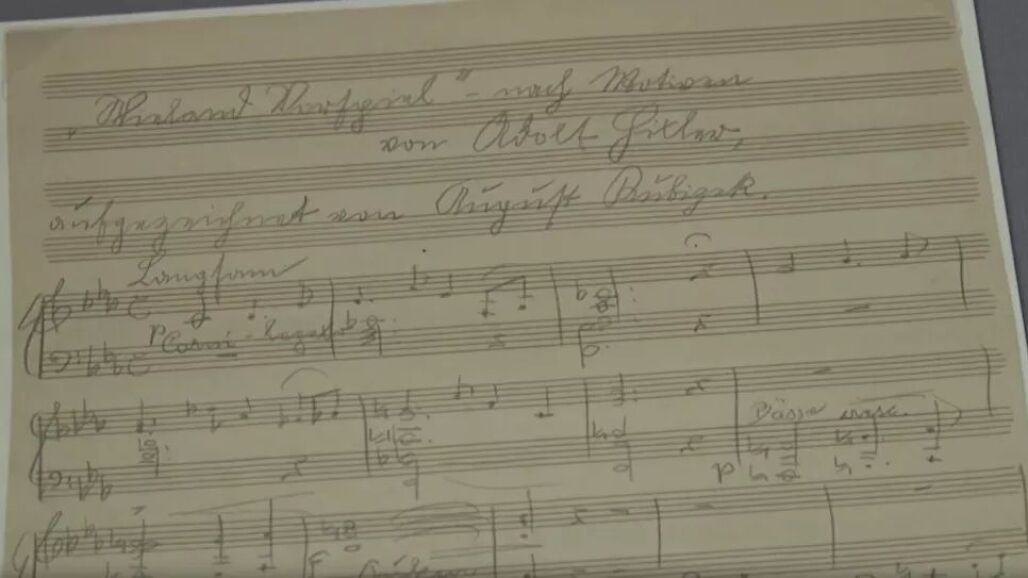 „Wieland Vorspiel" - nach Motiven
von Adolf Hitler,
aufgezeichnet von August Kubizek.
Langsam
p Corni - legato
Bässe
p